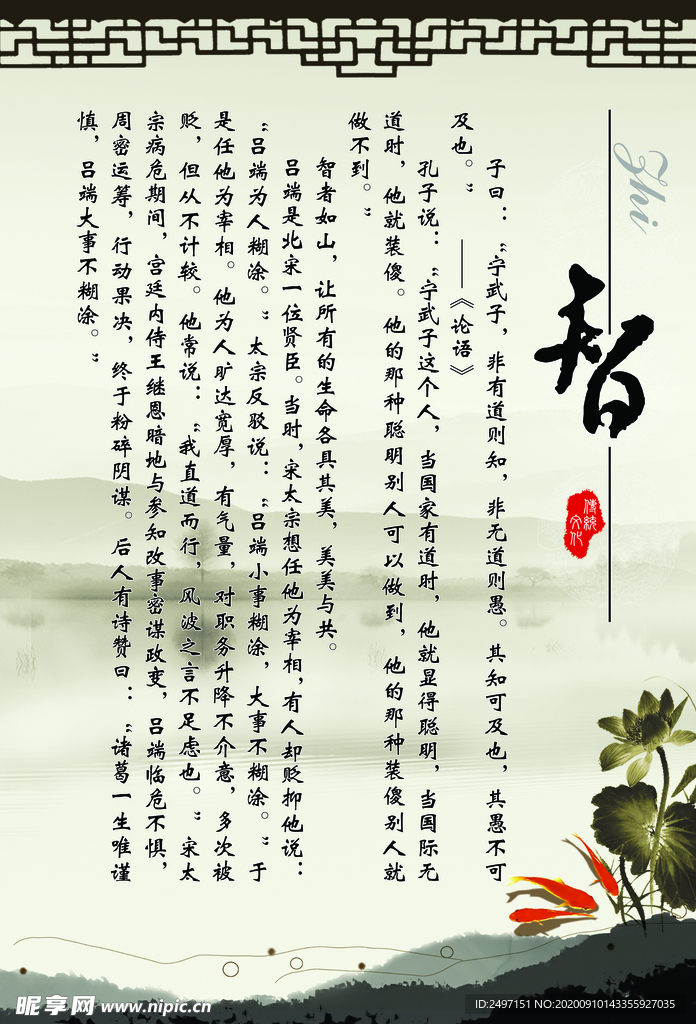 Zhi
智
傳統
文化
子曰：“宁武子，非有道则知，非无道则愚。其知可及也，其愚不可
及也。” ——《论语》
孔子说：“宁武子这个人，当国家有道时，他就显得聪明，当国际无
道时，他就装傻。他的那种聪明别人可以做到，他的那种装傻别人就
做不到。”
智者如山，让所有的生命各具其美，美美与共。
吕端是北宋一位贤臣。当时，宋太宗想任他为宰相，有人却贬抑他说：
“吕端为人糊涂。”太宗反驳说：“吕端小事糊涂，大事不糊涂。”于
是任他为宰相。他为人旷达宽厚，有气量，对职务升降不介意，多次被
贬，但从不计较。他常说：“我直道而行，风波之言不足虑也。”宋太
宗病危期间，宫廷内侍王继恩暗地与参知改事密谋政变，吕端临危不惧，
周密运筹，行动果决，终于粉碎阴谋。后人有诗赞曰：“诸葛一生唯谨
慎，吕端大事不糊涂。”
昵享网 www.nipic.cn
ID:2497151 NO:20200910143355927035